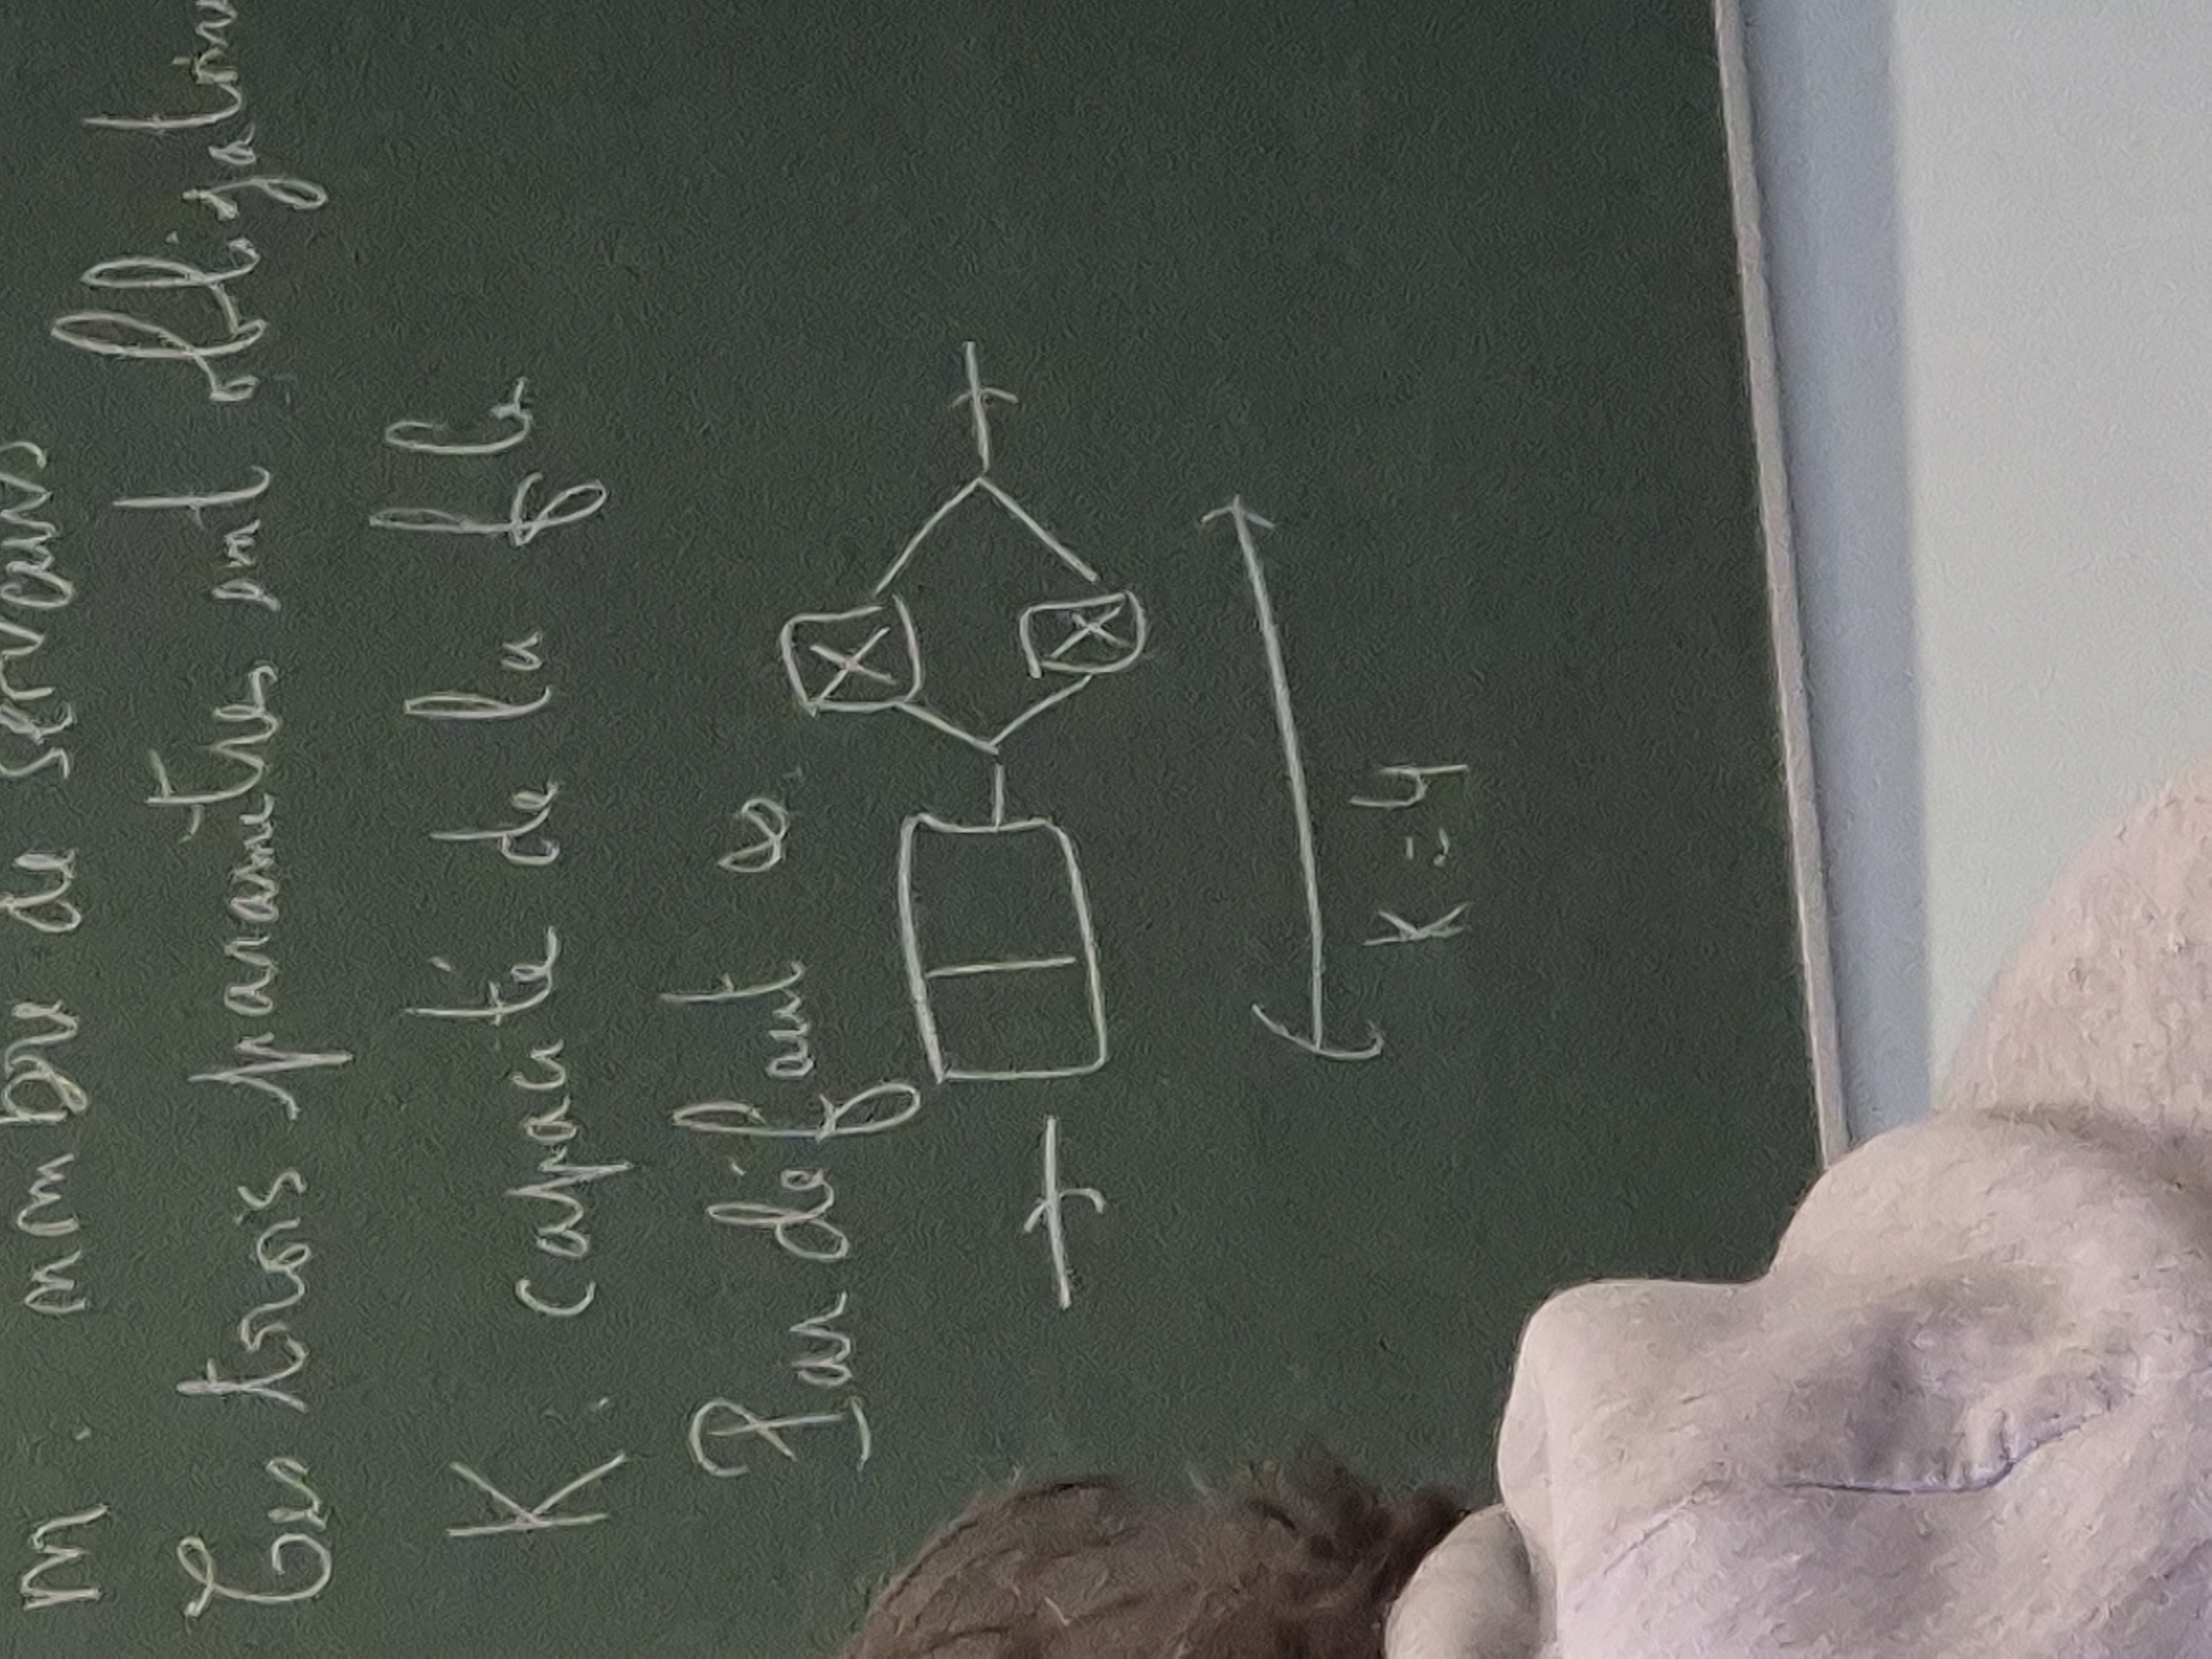 m : nombre de serveurs
Ces trois paramètres sont obligatoires
K : capacité de la file
Par défaut ∞.
K = 4